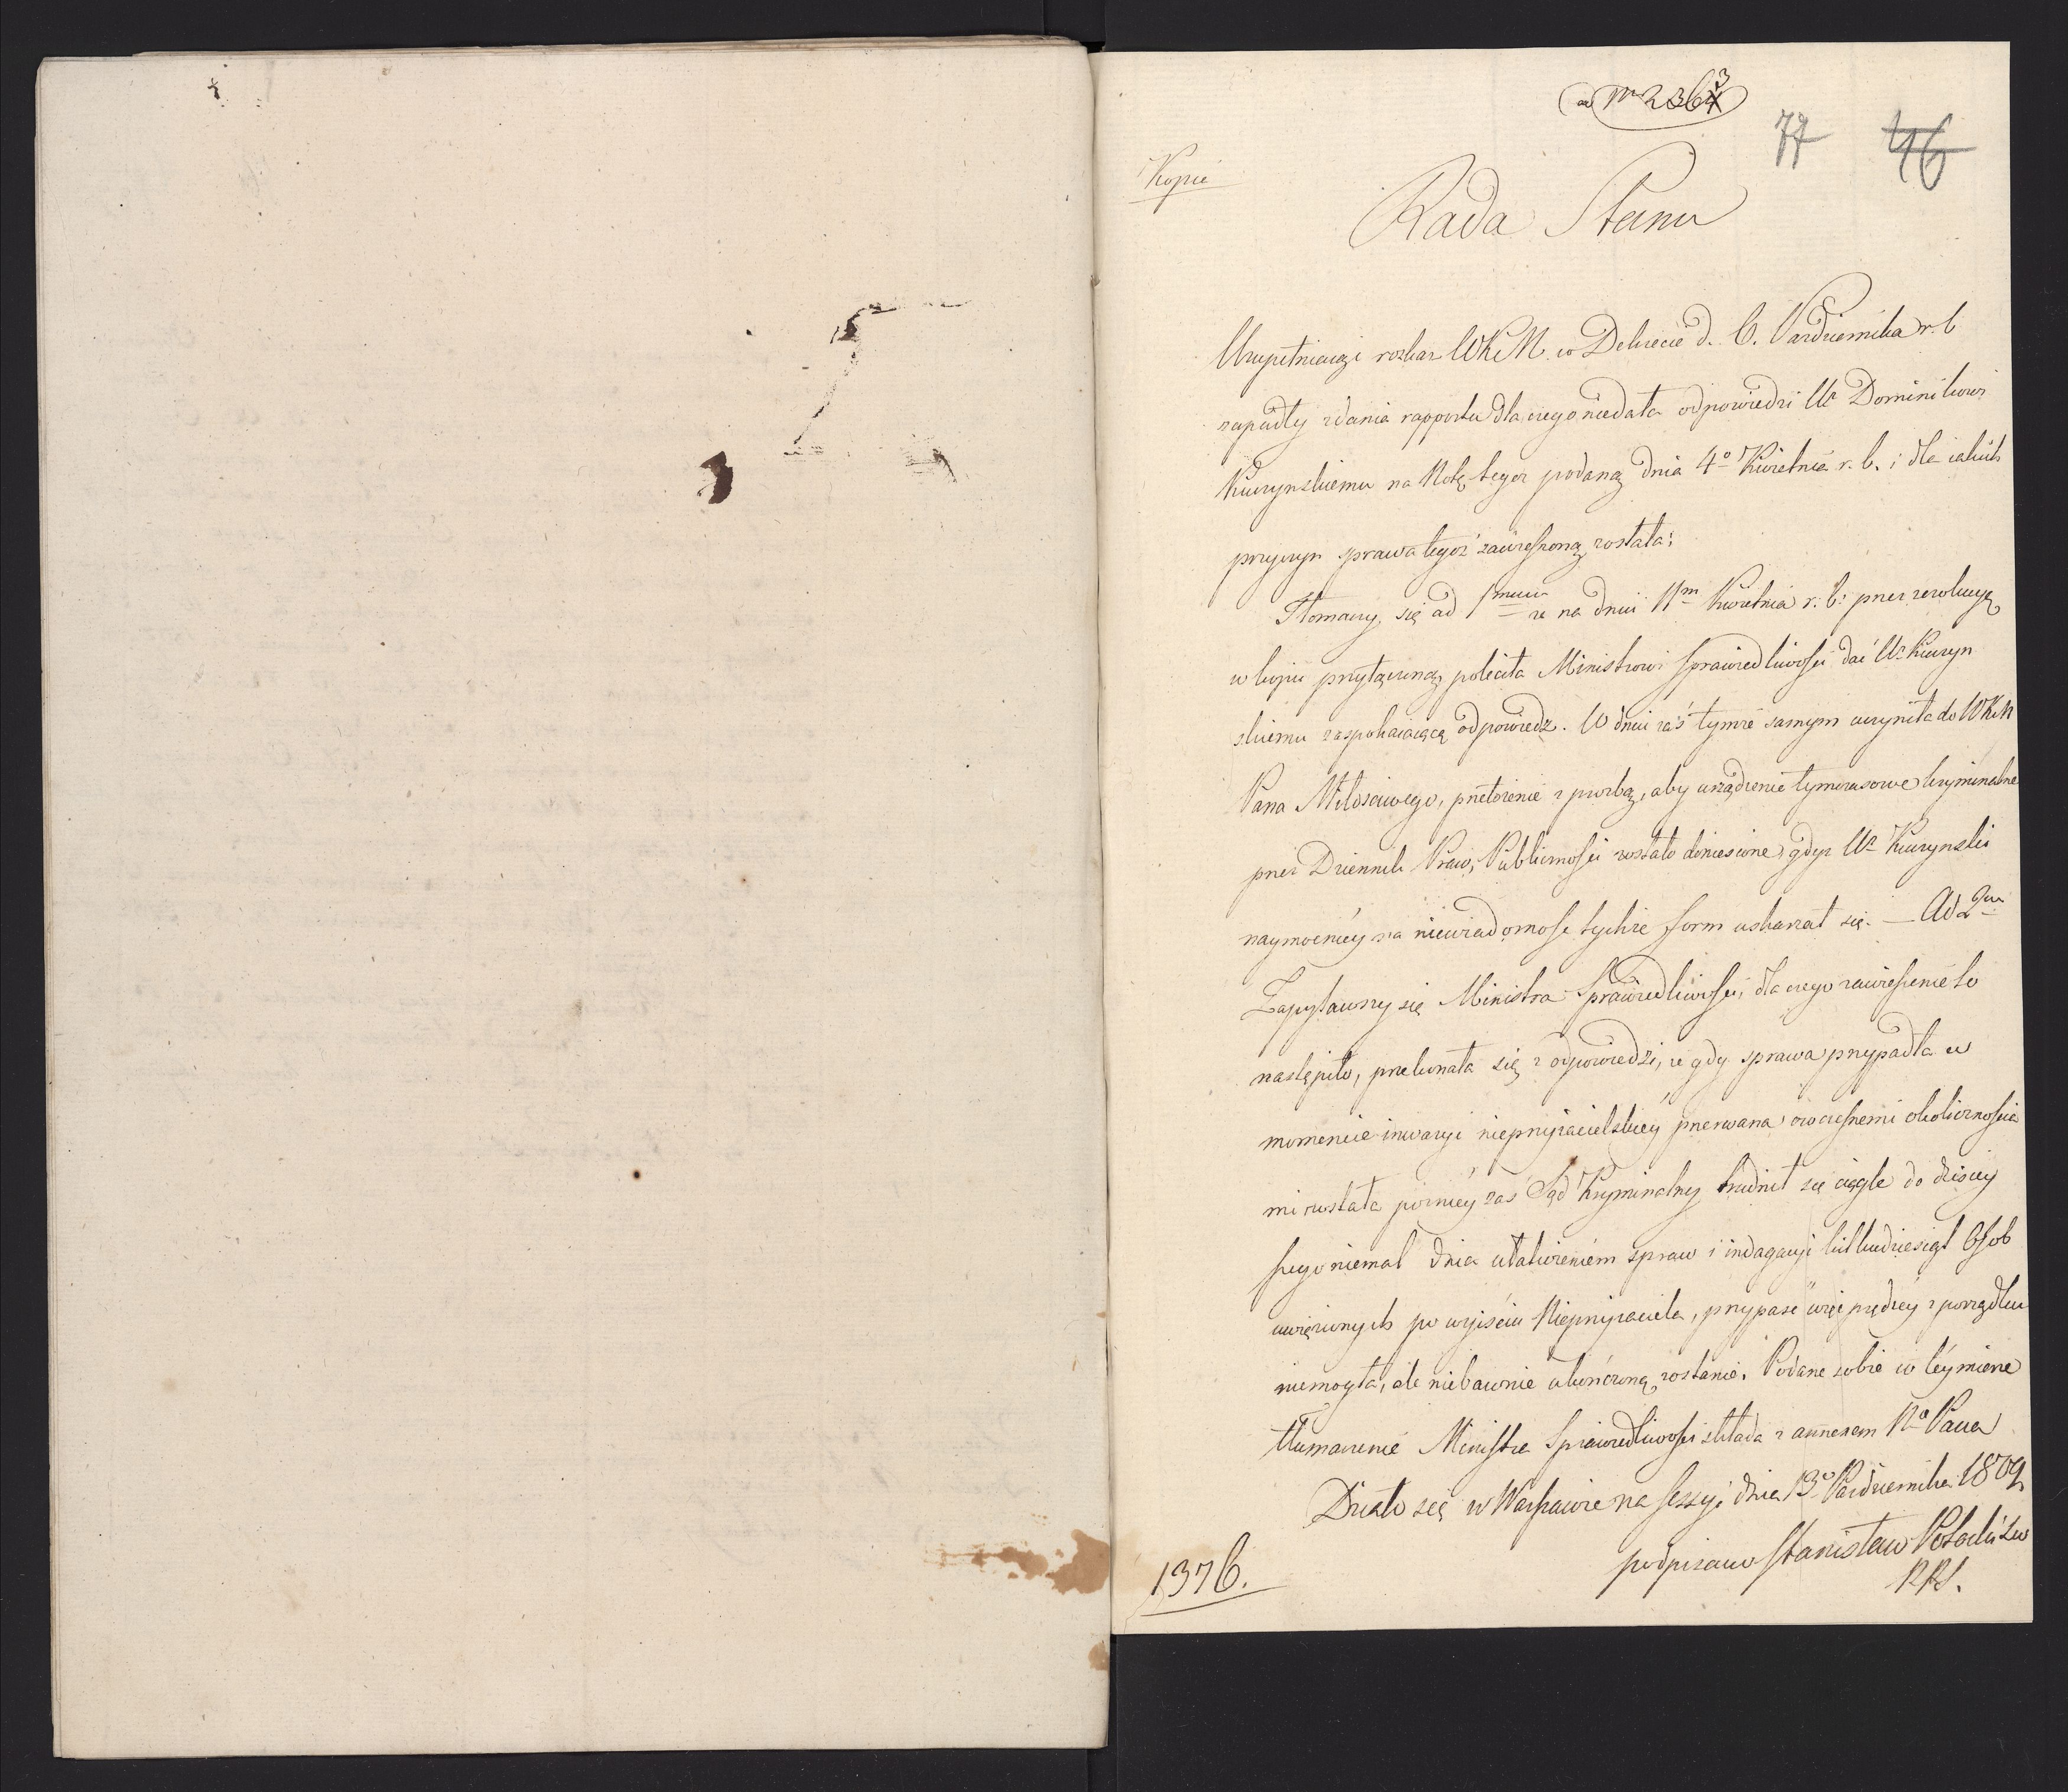 ad nr 2363
77 46
Kopia
Rada Stanu
Uzupełniaiąc rozkaz WKM. w Dekrecie d. 6. Pazdziernika r. b
zapadły zdania rapportu dla czego niedała odpowiedzi Ur Dominikowi
Kuczynskiemu na Notę tegoż podaną dnia 4o Kwietnia r. b. i dla iakich
przyczyn sprawa tegoż zawieszoną została;
Tłomaczy się ad 1mum że na dniu 11m Kwietnia r. b: przez rezolucyę
w kopii przyłączoną poleciła Ministrowi Sprawiedliwości dać Ur Kuczyn
skiemu zaspokaiaiącą odpowiedz. W dniu zaś tymże samym uczyniła do WKM
Pana Miłościwego, przełożenie z prozbą, aby urządzenie tymczasowe kryminalne
przez Dziennik Praw, Publiczności zostało doniesione, gdyz Ur Kuczynski
naymocniéy na niewiadomość tychże form uskarzał się. — Ad 2um
Zapytawszy się Ministra Sprawiedliwości, dla czego zawieszenie to
nastąpiło, przekonała się z odpowiedzi, że gdy sprawa przypadła w
momencie inwazyi nieprzyiacielskiey przerwana owczesnemi okolicznościa
mi została pózniéy zas Sąd Kryminalny trudnił się ciągle do dzisiey
szego niemal dnia ułatwieniem spraw i indagacyi kilkudziesiąt Osob
uwięzionych po wyiściu Nieprzyiaciela, przypaść więc prędzéy z porządku
niemogła, ale niebawnie ukończoną zostanie. Podane sobie w téy mierze
tłumaczenie Ministra Sprawiedliwości składa z annexem No Pana
Działo się w Warszawie na Sessyi dnia 13o Pazdziernika 1809
podpisano Stanisław Potocki
PRS.
1376.